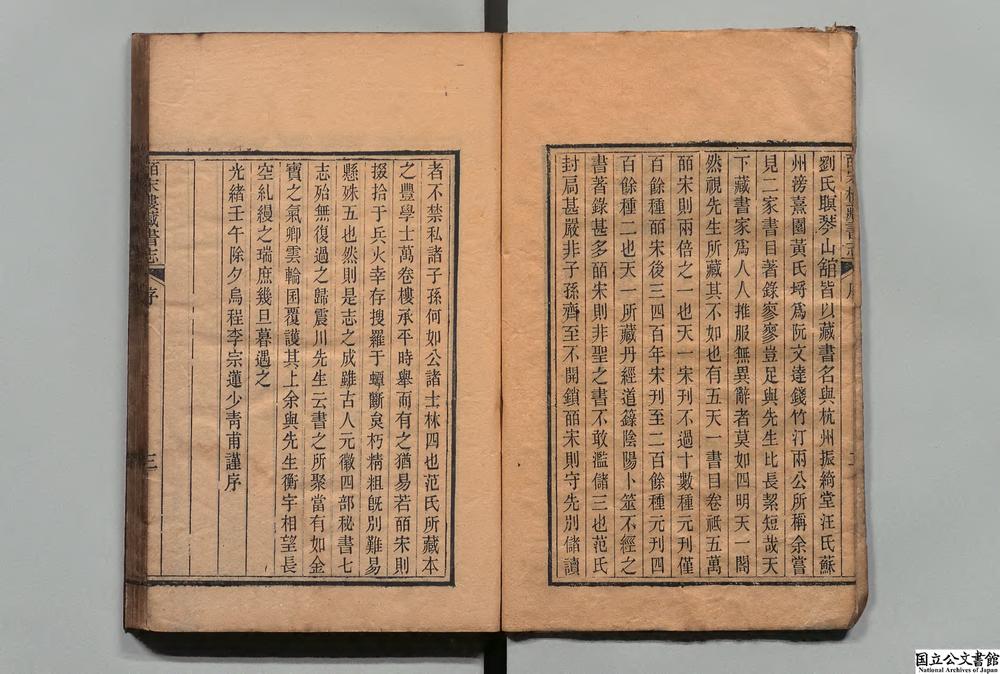 劉氏眠琴山館皆以藏書名與杭州振綺堂汪氏蘇
州滂熹園黃氏埒爲阮文達錢竹汀兩公所稱余嘗
見二家書目著錄寥寥豈足與先生比長絜短哉天
下藏書家爲人人推服無異辭者莫如四明天一閣
然視先生所藏其不如也有五天一書目卷祗五萬
皕宋則兩倍之一也天一宋刊不過十數種元刊僅
百餘種皕宋後三四百年宋刊至二百餘種元刊四
百餘種二也天一所藏丹經道籙陰陽卜筮不經之
書著錄甚多皕宋則非聖之書不敢濫儲三也范氏
封扃甚嚴非子孫齊至不開鎖皕宋則守先別儲讀
者不禁私諸子孫何如公諸士林四也范氏所藏本
之豐學士萬卷樓承平時舉而有之猶易若皕宋則
掇拾于兵火幸存搜羅于蟫斷炱朽精粗旣別難易
懸殊五也然則是志之成雖古人元徽四部秘書七
志殆無復過之歸震川先生云書之所聚當有如金
寶之氣卿雲輪囷覆護其上余與先生衡宇相望長
空糺縵之瑞庶幾旦暮遇之
光緒壬午除夕烏程李宗蓮少靑甫謹序
皕宋樓藏書志
序
三
国立公文書館
National Archives of Japan